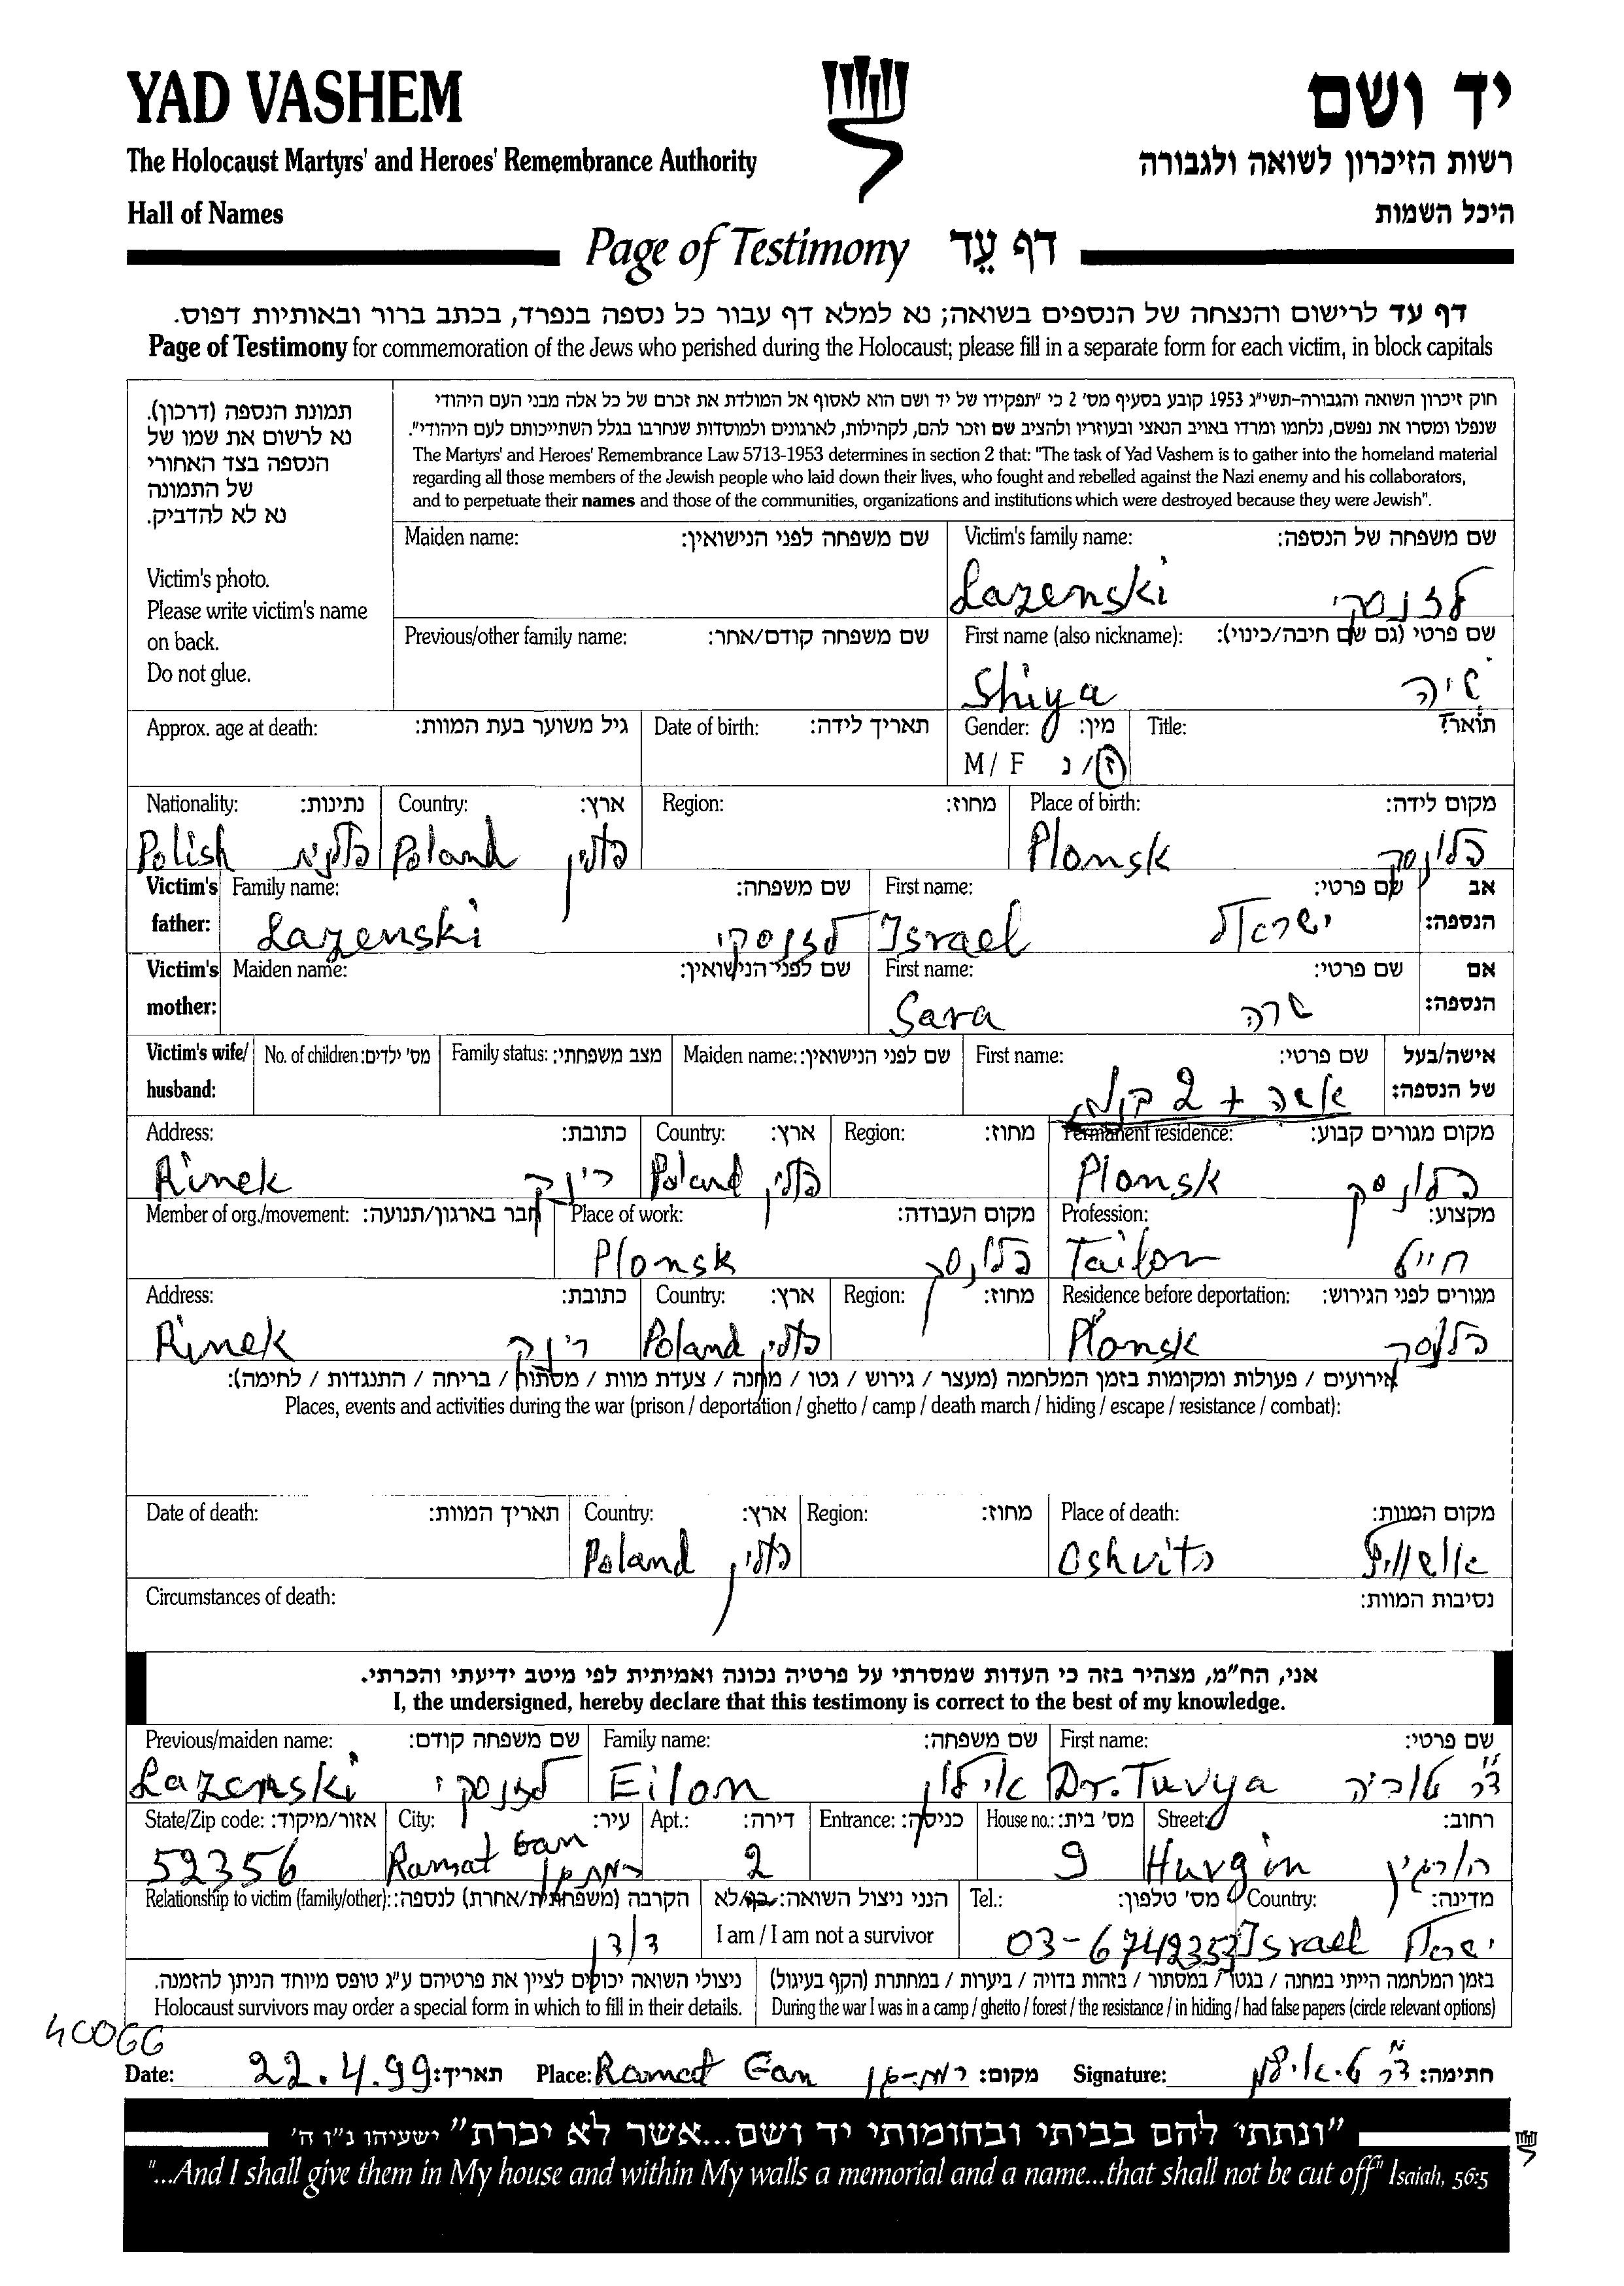 YAD VASHEM יד ושם
The Holocaust Martyrs' and Heroes' Remembrance Authority רשות הזיכרון לשואה ולגבורה
Hall of Names היכל השמות
Page of Testimony דף עֵד
דף עד לרישום והנצחה של הנספים בשואה; נא למלא דף עבור כל נספה בנפרד, בכתב ברור ובאותיות דפוס.
Page of Testimony for commemoration of the Jews who perished during the Holocaust; please fill in a separate form for each victim, in block capitals
תמונת הנספה (דרכון).
נא לרשום את שמו של
הנספה בצד האחורי
של התמונה
נא לא להדביק.
Victim's photo.
Please write victim's name
on back.
Do not glue.
חוק זיכרון השואה והגבורה-תשי"ג 1953 קובע בסעיף מס' 2 כי "תפקידו של יד ושם הוא לאסוף אל המולדת את זכרם של כל אלה מבני העם היהודי
שנפלו ומסרו את נפשם, נלחמו ומרדו באויב הנאצי ובעוזריו ולהציב שם וזכר להם, לקהילות, לארגונים ולמוסדות שנחרבו בגלל השתייכותם לעם היהודי".
The Martyrs' and Heroes' Remembrance Law 5713-1953 determines in section 2 that: "The task of Yad Vashem is to gather into the homeland material
regarding all those members of the Jewish people who laid down their lives, who fought and rebelled against the Nazi enemy and his collaborators,
and to perpetuate their names and those of the communities, organizations and institutions which were destroyed because they were Jewish".
Maiden name: שם משפחה לפני הנישואין: Victim's family name: שם משפחה של הנספה:
Lazenski לזנסקי
Previous/other family name: שם משפחה קודם/אחר: First name (also nickname): שם פרטי (גם שם חיבה/כינוי):
Shiya שיה
Approx. age at death: גיל משוער בעת המוות: Date of birth: תאריך לידה: Gender: מין: Title: תואר:
M / F ז / נ
Nationality: נתינות: Country: ארץ: Region: מחוז: Place of birth: מקום לידה:
Polish פולנית Poland פולין Plonsk פלונסק
Victim's father: Family name: שם משפחה: First name: שם פרטי: אב הנספה:
Lazenski לזנסקי Israel ישראל
Victim's mother: Maiden name: שם לפני הנישואין: First name: שם פרטי: אם הנספה:
Sara שרה
Victim's wife/ husband: No. of children: מס' ילדים: Family status: מצב משפחתי: Maiden name: שם לפני הנישואין: First name: שם פרטי: אישה/בעל של הנספה:
אשה + 2
Address: כתובת: Country: ארץ: Region: מחוז: Permanent residence: מקום מגורים קבוע:
Rinek רינק Poland פולין Plonsk פלונסק
Member of org./movement: חבר בארגון/תנועה: Place of work: מקום העבודה: Profession: מקצוע:
Plonsk פלונסק Tailor חייט
Address: כתובת: Country: ארץ: Region: מחוז: Residence before deportation: מגורים לפני הגירוש:
Rinek רינק Poland פולין Plonsk פלונסק
אירועים / פעולות ומקומות בזמן המלחמה (מעצר / גירוש / גטו / מחנה / צעדת מוות / מסתור / בריחה / התנגדות / לחימה):
Places, events and activities during the war (prison / deportation / ghetto / camp / death march / hiding / escape / resistance / combat):
Date of death: תאריך המוות: Country: ארץ: Region: מחוז: Place of death: מקום המוות:
Poland פולין Oshvits אושוויץ
Circumstances of death: נסיבות המוות:
אני, הח"מ, מצהיר בזה כי העדות שמסרתי על פרטיה נכונה ואמיתית לפי מיטב ידיעתי והכרתי.
I, the undersigned, hereby declare that this testimony is correct to the best of my knowledge.
Previous/maiden name: שם משפחה קודם: Family name: שם משפחה: First name: שם פרטי:
Lazenski לזנסקי Eilon אילון Dr. Tuvya ד"ר טוביה
State/Zip code: אזור/מיקוד: City: עיר: Apt.: דירה: Entrance: כניסה: House no.: מס' בית: Street: רחוב:
52356 Ramat Gan רמת גן 2 9 Hurgin חורגין
Relationship to victim (family/other): הקרבה (משפחתית/אחרת) לנספה: הנני ניצול השואה: כן/לא Tel.: מס' טלפון: Country: מדינה:
דודן I am / I am not a survivor 03-6742353 Israel ישראל
ניצולי השואה יכולים לציין את פרטיהם ע"ג טופס מיוחד הניתן להזמנה. בזמן המלחמה הייתי במחנה / בגטו / במסתור / בזהות בדויה / ביערות / במחתרת (הקף בעיגול)
Holocaust survivors may order a special form in which to fill in their details. During the war I was in a camp / ghetto / forest / the resistance / in hiding / had false papers (circle relevant options)
Date: 22.4.99 תאריך: Place: Ramat Gan רמת-גן מקום: Signature: ד"ר ט. אילון חתימה:
"ונתתי להם בביתי ובחומותי יד ושם...אשר לא יכרת" ישעיהו נ"ו ה'
"...And I shall give them in My house and within My walls a memorial and a name...that shall not be cut off" Isaiah, 56:5